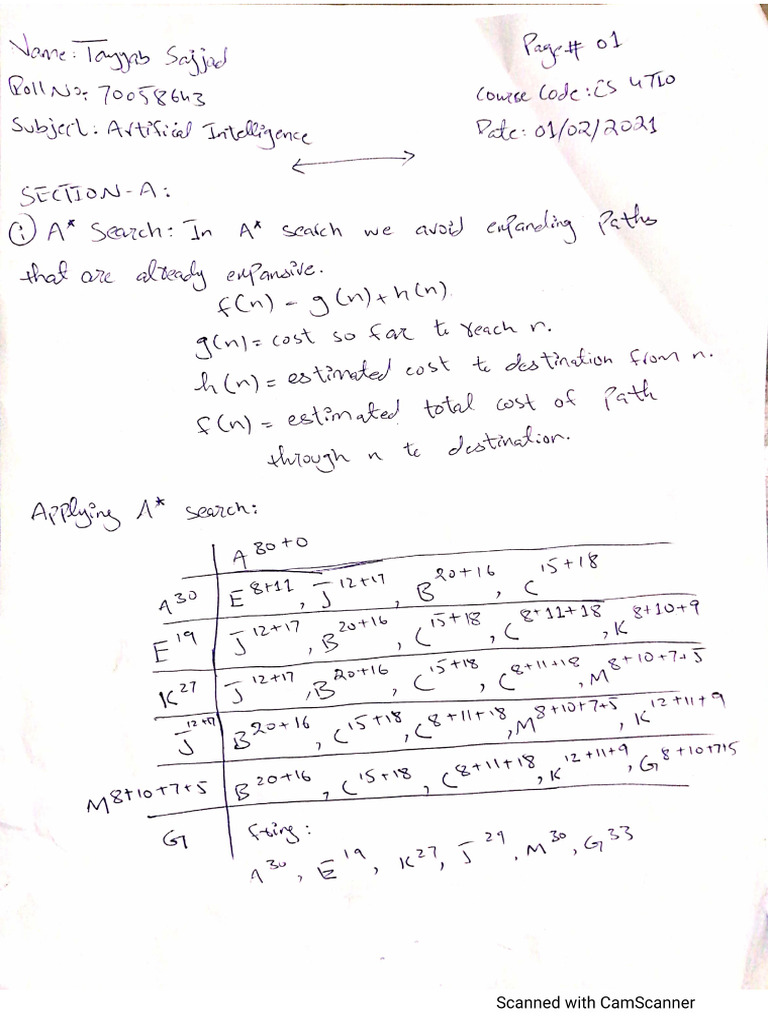 Name: Tayyab Sajjad
Page# 01
Roll No: 70058643
Course Code: CS 4710
Subject: Artificial Intelligence
Date: 01/02/2021
SECTION-A:
i A* Search: In A* search we avoid expanding paths
that are already expansive.
f(n) = g(n) + h(n)
g(n) = cost so far to reach n.
h(n) = estimated cost to destination from n.
f(n) = estimated total cost of path
through n to destination.
Applying A* search:
A 30+0
A30 E 8+11, J 12+17, B 20+16, C 15+18
E19 J 12+17, B 20+16, C 15+18, C 8+11+18, K 8+10+9
K27 J 12+17, B 20+16, C 15+18, C 8+11+18, M 8+10+7+5
J 12+17 B 20+16, C 15+18, C 8+11+18, M 8+10+7+5, K 12+11+9
M 8+10+7+5 B 20+16, C 15+18, C 8+11+18, K 12+11+9, G 8+10+715
G
A30, E19, K27, J29, M30, G33
Scanned with CamScanner